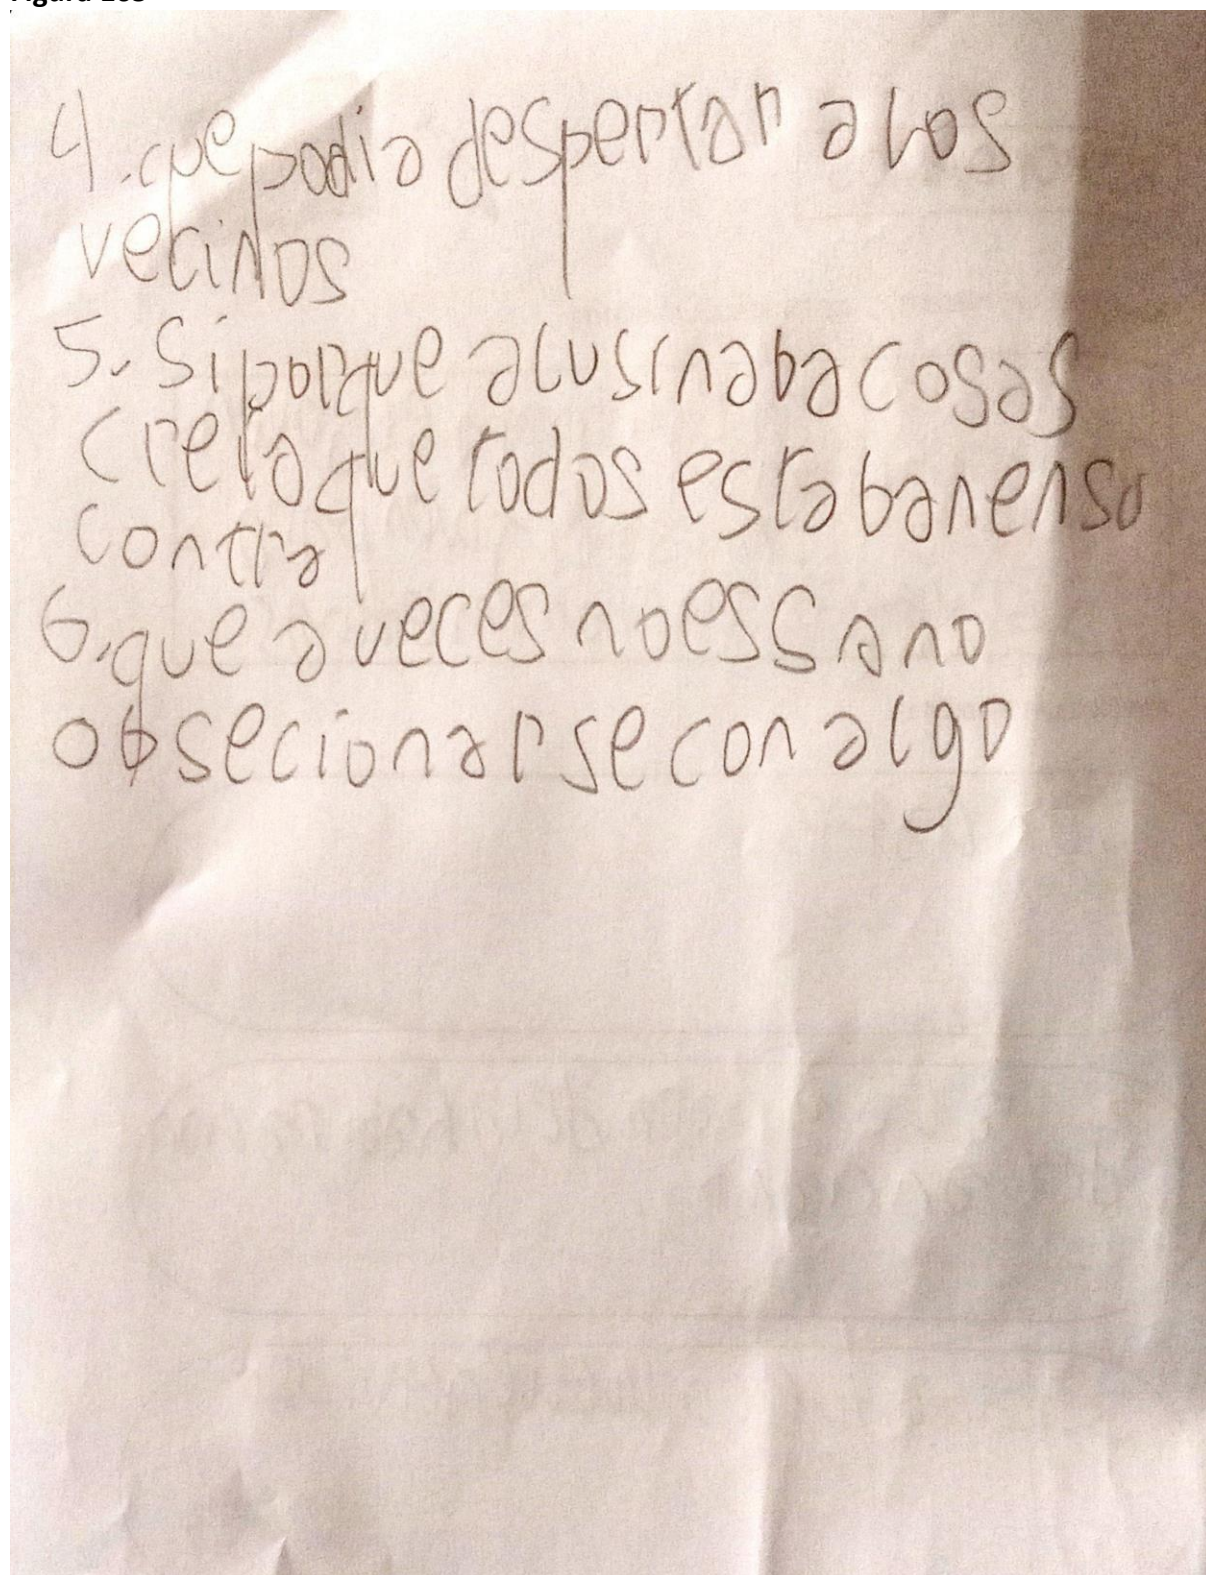 4. que podia despertar a los
vecinos
5. Si porque alusinaba cosas
creia que todos estaban en su
contra
6. que a veces no es sano
obsecionarse con algo